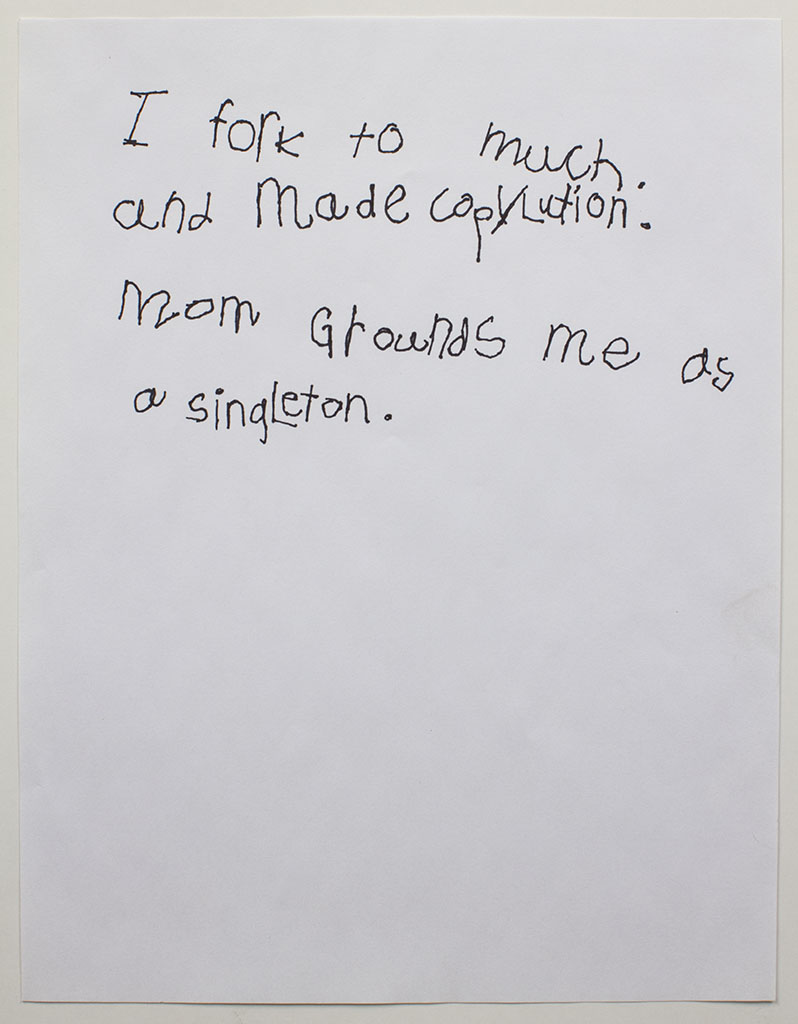 I fork to much.
and Made copyLution.
Mom Grounds me as
a singLeton.